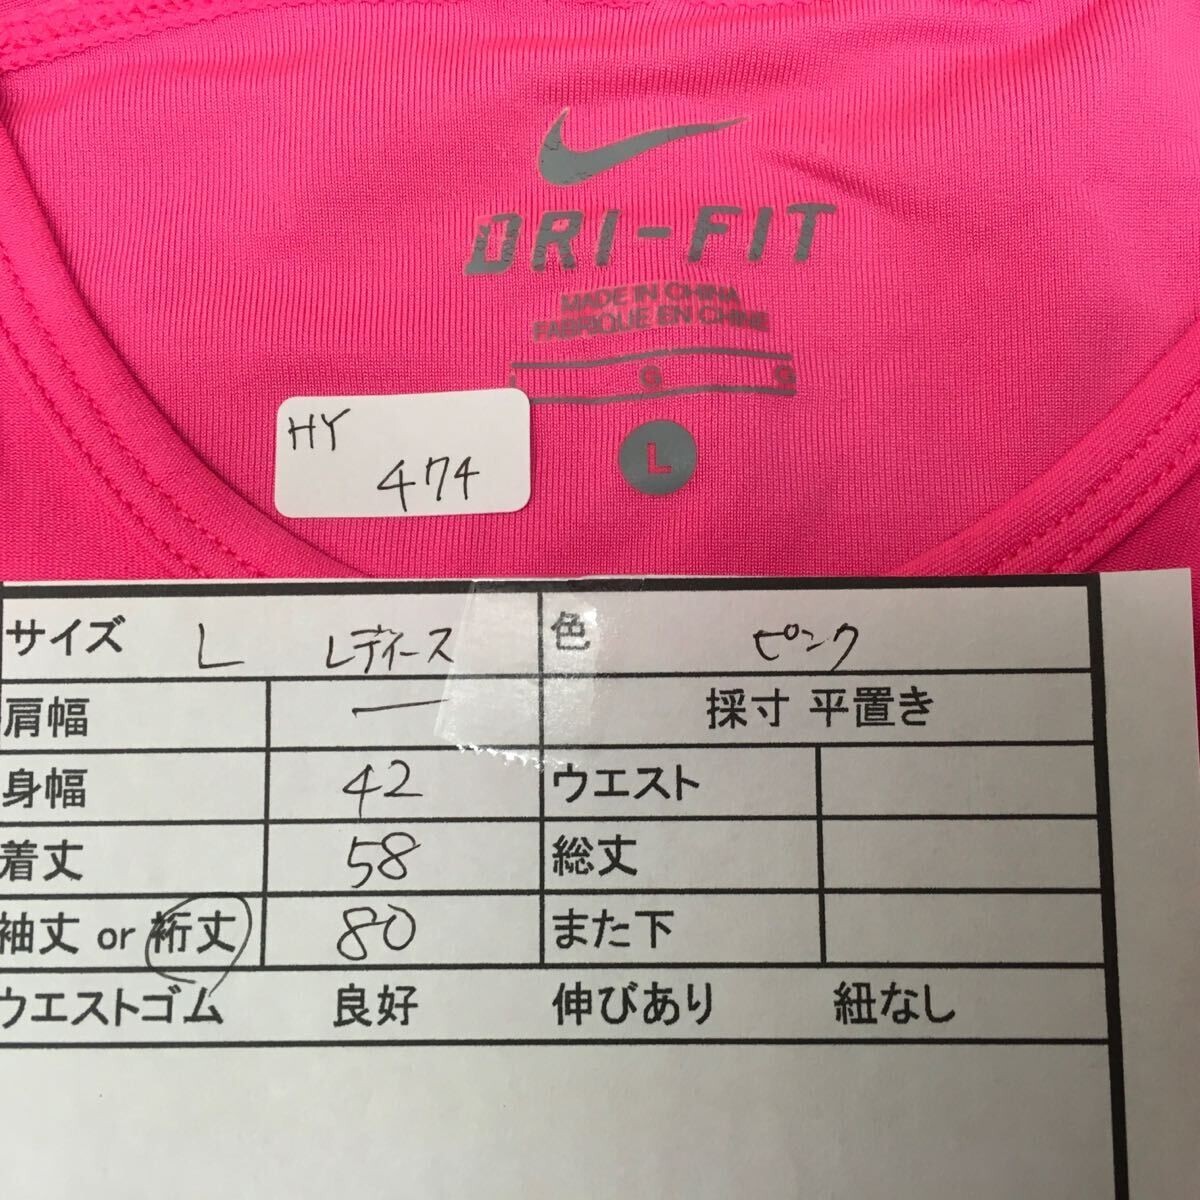 DRI-FIT
MADE IN CHINA
FABRIQUE EN CHINE
G G
L
HY
474
サイズ L レディース 色 ピンク
肩幅 ー 採寸 平置き
身幅 42 ウエスト
着丈 58 総丈
袖丈 or 裄丈 80 また下
ウエストゴム 良好 伸びあり 紐なし